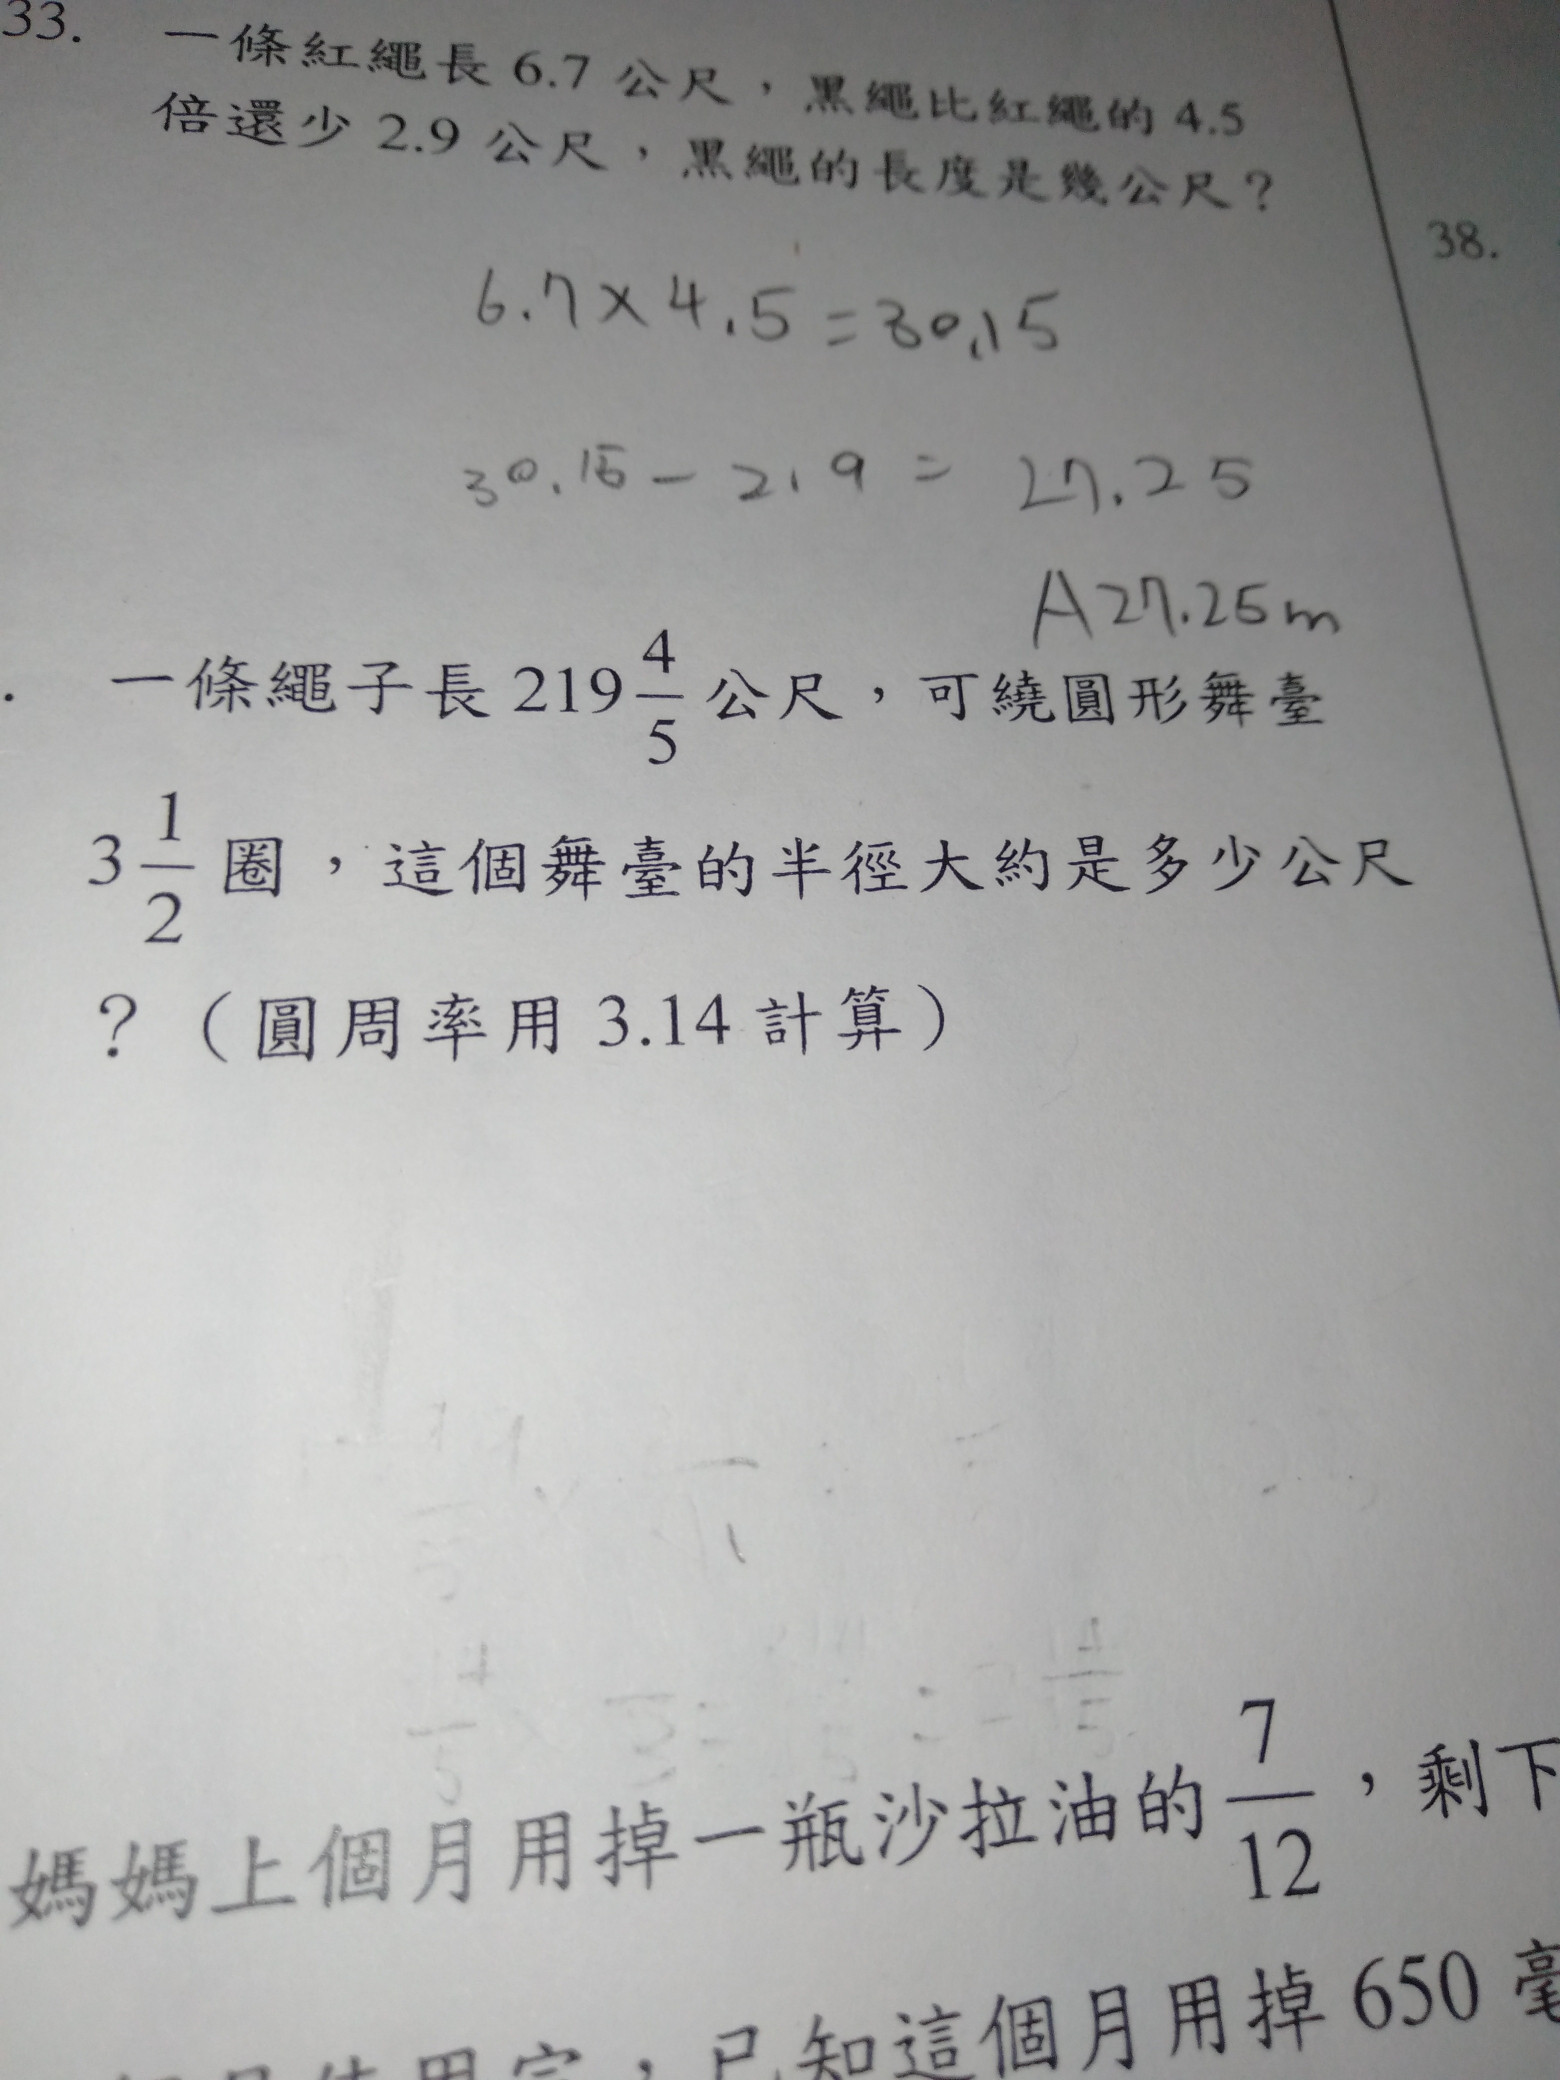 33. 一條紅繩長 6.7 公尺，黑繩比紅繩的 4.5
倍還少 2.9 公尺，黑繩的長度是幾公尺？
38.
6.7×4.5=30.15
30.15-2.9=27.25
A27.25m
一條繩子長 219 4/5 公尺，可繞圓形舞臺
3 1/2 圈，這個舞臺的半徑大約是多少公尺
？（圓周率用 3.14 計算）
媽媽上個月用掉一瓶沙拉油的 7/12，剩下
，已知這個月用掉 650 毫